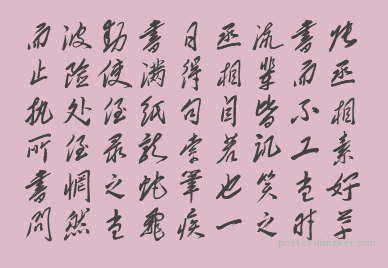 张丞相素好草
書而不工当时
流輩皆讥笑之
丞相自若也一
日得句索筆疾
書满纸龙蛇飛
動使侄录之当
波险处侄惘然
而止执所書问